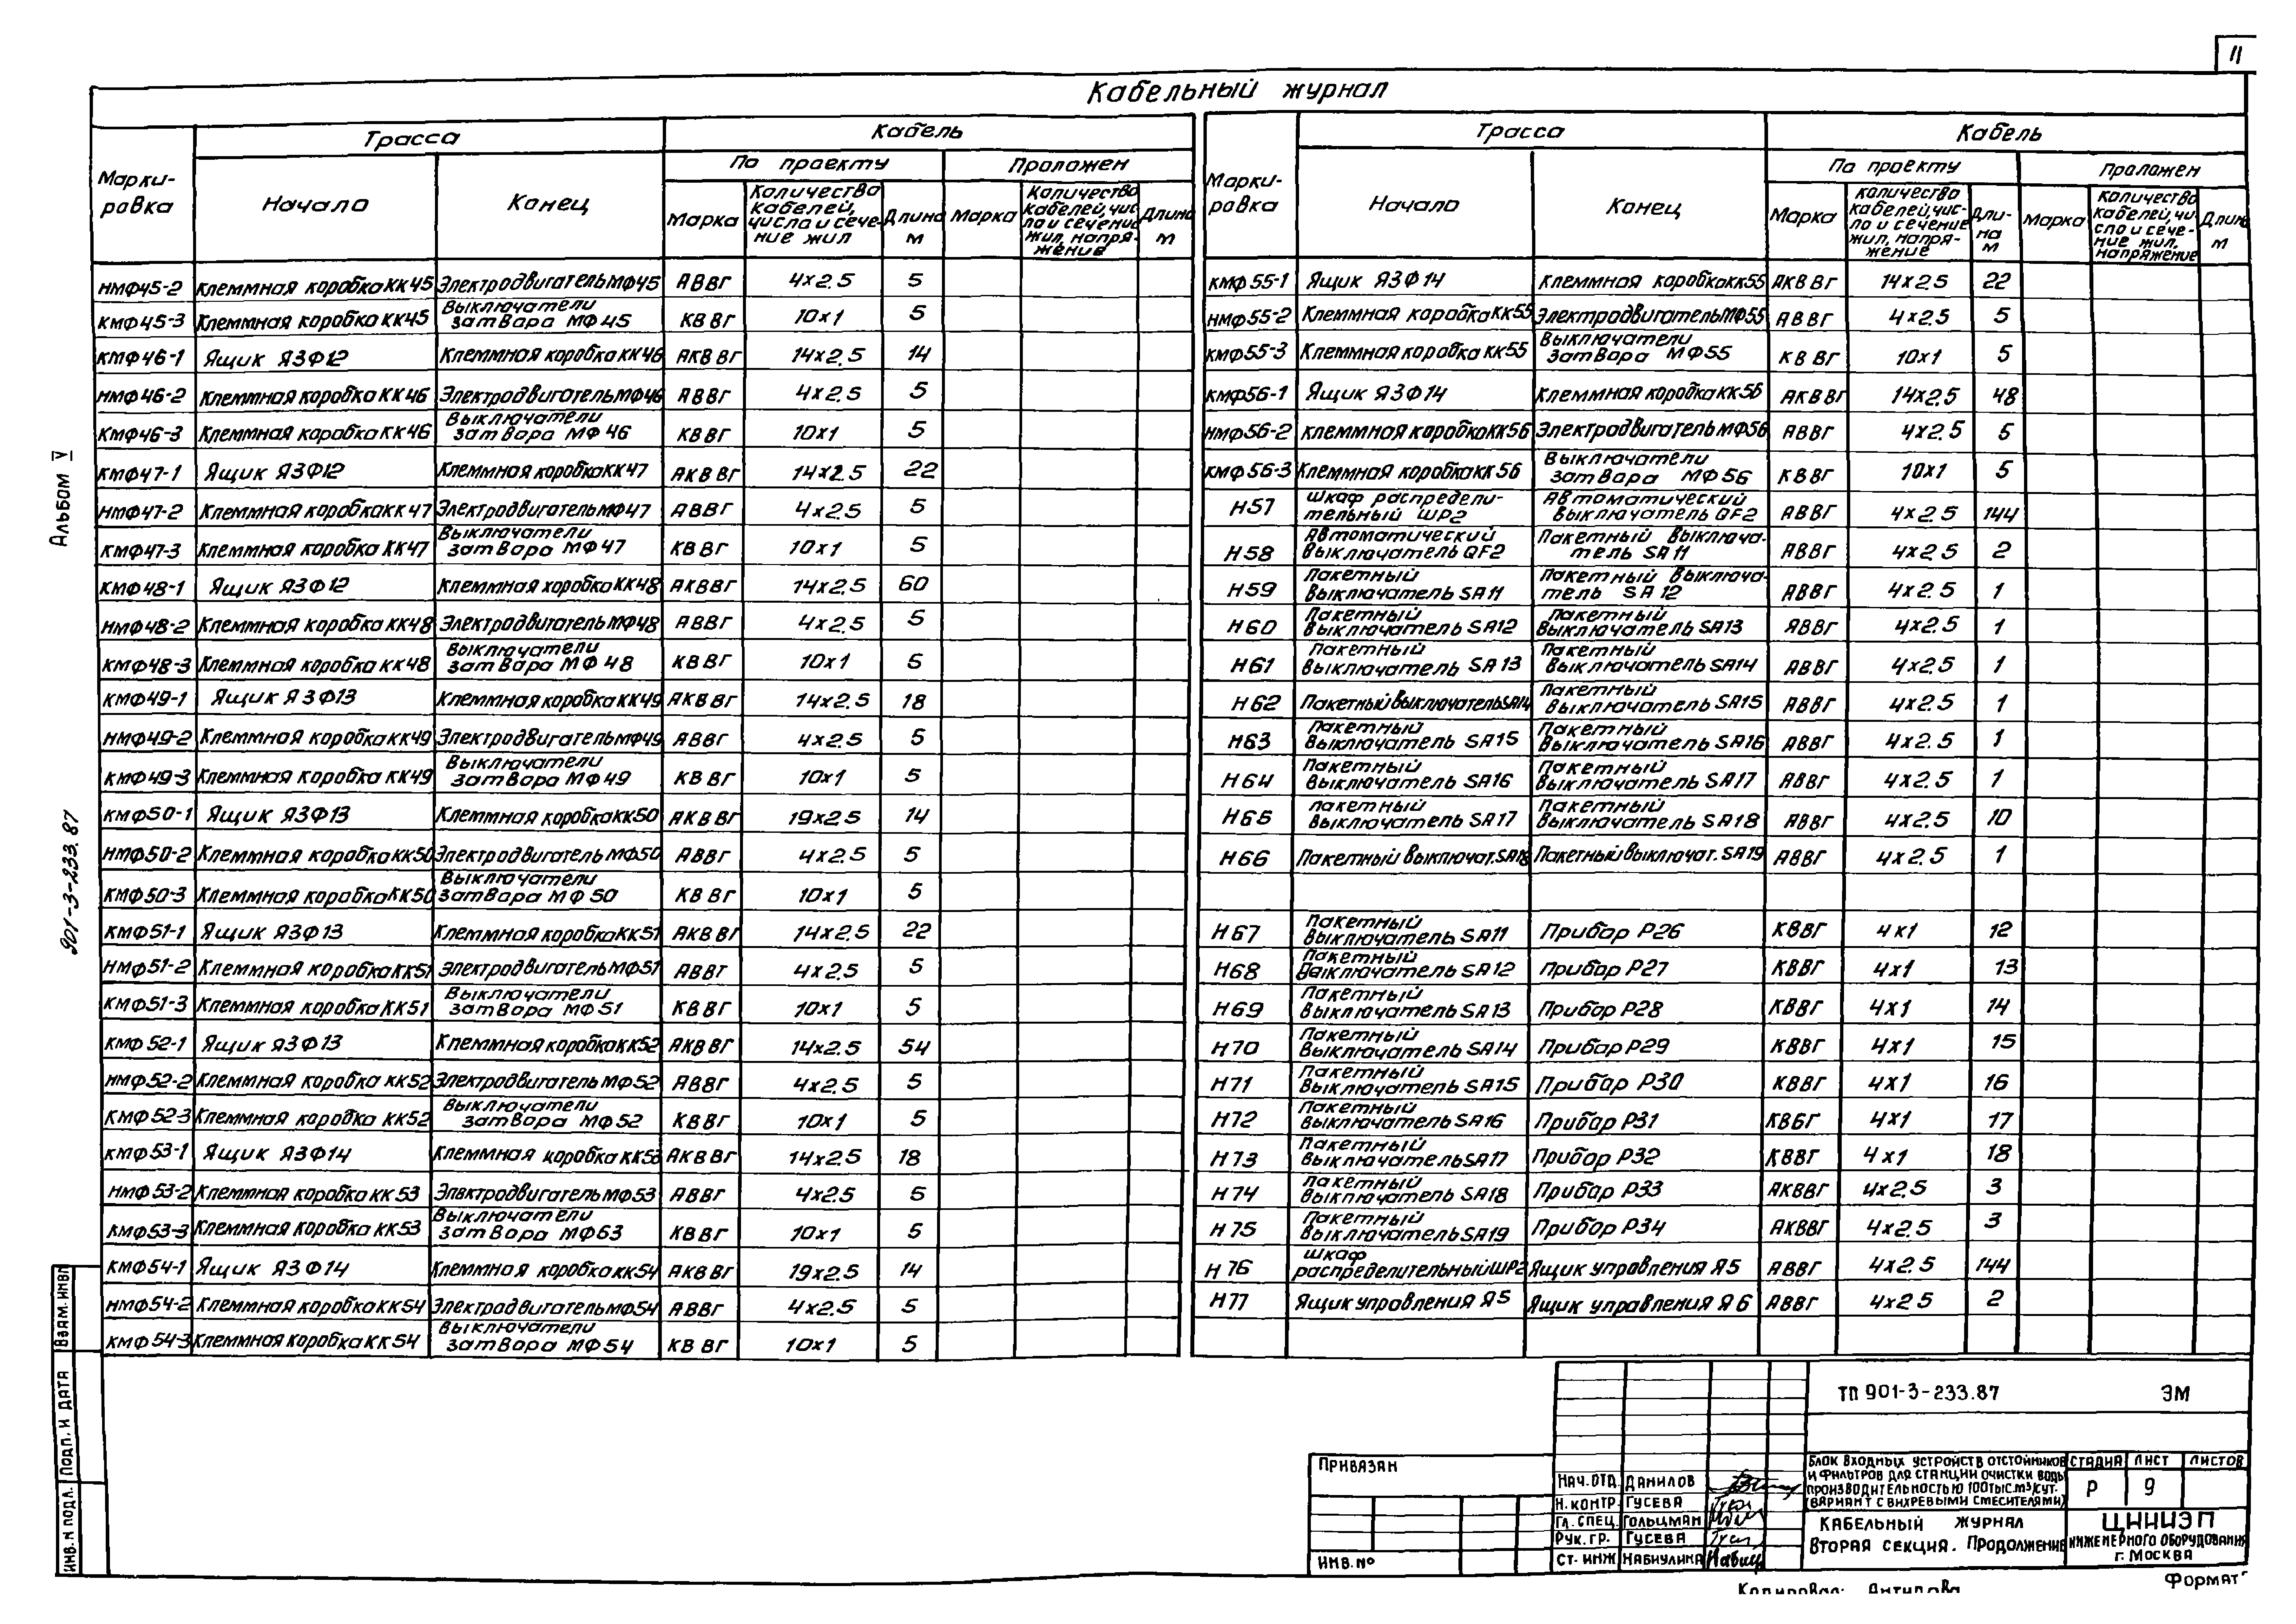 11
Кабельный журнал
Марки-ровка | Трасса | Кабель
Начало | Конец | По проекту | Проложен
Марка | Количество кабелей, числа и сече-ние жил | Длина м | Марка | Количество кабелей, чис-ла и сечение жил, напря-жение | Длина м
НМФ45-2 Клеммная коробка КК45 Электродвигатель МФ45 АВВГ 4х2.5 5
КМФ45-3 Клеммная коробка КК45 Выключатели затвора МФ45 КВВГ 10х1 5
КМФ46-1 Ящик ЯЗФ12 Клеммная коробка КК46 АКВВГ 14х2.5 14
НМФ46-2 Клеммная коробка КК46 Электродвигатель МФ46 АВВГ 4х2.5 5
КМФ46-3 Клеммная коробка КК46 Выключатели затвора МФ46 КВВГ 10х1 5
КМФ47-1 Ящик ЯЗФ12 Клеммная коробка КК47 АКВВГ 14х2.5 22
НМФ47-2 Клеммная коробка КК47 Электродвигатель МФ47 АВВГ 4х2.5 5
КМФ47-3 Клеммная коробка КК47 Выключатели затвора МФ47 КВВГ 10х1 5
КМФ48-1 Ящик ЯЗФ12 Клеммная коробка КК48 АКВВГ 14х2.5 60
НМФ48-2 Клеммная коробка КК48 Электродвигатель МФ48 АВВГ 4х2.5 5
КМФ48-3 Клеммная коробка КК48 Выключатели затвора МФ48 КВВГ 10х1 5
КМФ49-1 Ящик ЯЗФ13 Клеммная коробка КК49 АКВВГ 14х2.5 18
НМФ49-2 Клеммная коробка КК49 Электродвигатель МФ49 АВВГ 4х2.5 5
КМФ49-3 Клеммная коробка КК49 Выключатели затвора МФ49 КВВГ 10х1 5
КМФ50-1 Ящик ЯЗФ13 Клеммная коробка КК50 АКВВГ 19х2.5 14
НМФ50-2 Клеммная коробка КК50 Электродвигатель МФ50 АВВГ 4х2.5 5
КМФ50-3 Клеммная коробка КК50 Выключатели затвора МФ50 КВВГ 10х1 5
КМФ51-1 Ящик ЯЗФ13 Клеммная коробка КК51 АКВВГ 14х2.5 22
НМФ51-2 Клеммная коробка КК51 Электродвигатель МФ51 АВВГ 4х2.5 5
КМФ51-3 Клеммная коробка КК51 Выключатели затвора МФ51 КВВГ 10х1 5
КМФ52-1 Ящик ЯЗФ13 Клеммная коробка КК52 АКВВГ 14х2.5 54
НМФ52-2 Клеммная коробка КК52 Электродвигатель МФ52 АВВГ 4х2.5 5
КМФ52-3 Клеммная коробка КК52 Выключатели затвора МФ52 КВВГ 10х1 5
КМФ53-1 Ящик ЯЗФ14 Клеммная коробка КК53 АКВВГ 14х2.5 18
НМФ53-2 Клеммная коробка КК53 Электродвигатель МФ53 АВВГ 4х2.5 5
КМФ53-3 Клеммная коробка КК53 Выключатели затвора МФ53 КВВГ 10х1 5
КМФ54-1 Ящик ЯЗФ14 Клеммная коробка КК54 АКВВГ 19х2.5 14
НМФ54-2 Клеммная коробка КК54 Электродвигатель МФ54 АВВГ 4х2.5 5
КМФ54-3 Клеммная коробка КК54 Выключатели затвора МФ54 КВВГ 10х1 5
Марки-ровка | Трасса | Кабель
Начало | Конец | По проекту | Проложен
Марка | Количество кабелей, чис-ло и сечение жил, напря-жение | Дли-на м | Марка | Количество кабелей, чи-сло и сече-ние жил, напряжение | Длина м
КМФ55-1 Ящик ЯЗФ14 Клеммная коробка КК55 АКВВГ 14х2.5 22
НМФ55-2 Клеммная коробка КК55 Электродвигатель МФ55 АВВГ 4х2.5 5
КМФ55-3 Клеммная коробка КК55 Выключатели затвора МФ55 КВВГ 10х1 5
КМФ56-1 Ящик ЯЗФ14 Клеммная коробка КК56 АКВВГ 14х2.5 48
НМФ56-2 Клеммная коробка КК56 Электродвигатель МФ56 АВВГ 4х2.5 5
КМФ56-3 Клеммная коробка КК56 Выключатели затвора МФ56 КВВГ 10х1 5
Н57 Шкаф распредели-тельный ШР2 Автоматический выключатель QF2 АВВГ 4х2.5 144
Н58 Автоматический выключатель QF2 Пакетный выключа-тель SA11 АВВГ 4х2.5 2
Н59 Пакетный выключатель SA11 Пакетный выключа-тель SA12 АВВГ 4х2.5 1
Н60 Пакетный выключатель SA12 Пакетный выключатель SA13 АВВГ 4х2.5 1
Н61 Пакетный выключатель SA13 Пакетный выключатель SA14 АВВГ 4х2.5 1
Н62 Пакетный выключатель SA14 Пакетный выключатель SA15 АВВГ 4х2.5 1
Н63 Пакетный выключатель SA15 Пакетный выключатель SA16 АВВГ 4х2.5 1
Н64 Пакетный выключатель SA16 Пакетный выключатель SA17 АВВГ 4х2.5 1
Н65 Пакетный выключатель SA17 Пакетный выключатель SA18 АВВГ 4х2.5 10
Н66 Пакетный выключат. SA18 Пакетный выключат. SA19 АВВГ 4х2.5 1
Н67 Пакетный выключатель SA11 Прибор Р26 КВВГ 4х1 12
Н68 Пакетный выключатель SA12 Прибор Р27 КВВГ 4х1 13
Н69 Пакетный выключатель SA13 Прибор Р28 КВВГ 4х1 14
Н70 Пакетный выключатель SA14 Прибор Р29 КВВГ 4х1 15
Н71 Пакетный выключатель SA15 Прибор Р30 КВВГ 4х1 16
Н72 Пакетный выключатель SA16 Прибор Р31 КВБГ 4х1 17
Н73 Пакетный выключатель SA17 Прибор Р32 КВВГ 4х1 18
Н74 Пакетный выключатель SA18 Прибор Р33 АКВВГ 4х2.5 3
Н75 Пакетный выключатель SA19 Прибор Р34 АКВВГ 4х2.5 3
Н76 Шкаф распределительный ШР2 Ящик управления Я5 АВВГ 4х2.5 144
Н77 Ящик управления Я5 Ящик управления Я6 АВВГ 4х2.5 2
Альбом V
901-3-233.87
Взам. инв
Подп. и дата
Инв. N подл.
Привязан
Инв. №
ТП 901-3-233.87 ЭМ
Нач. отд. Данилов
Н. контр. Гусева
Гл. спец. Гольцман
Рук. гр. Гусева
Ст. инж Набиулина
Блок входных устройств отстойников
и фильтров для станции очистки воды
производительностью 100 тыс. м³/сут.
(вариант с вихревыми смесителями)
Стадия Лист Листов
Р 9
Кабельный журнал
Вторая секция. Продолжение
ЦНИИЭП
инженерного оборудования
г. Москва
Копировал: Антипова
Формат